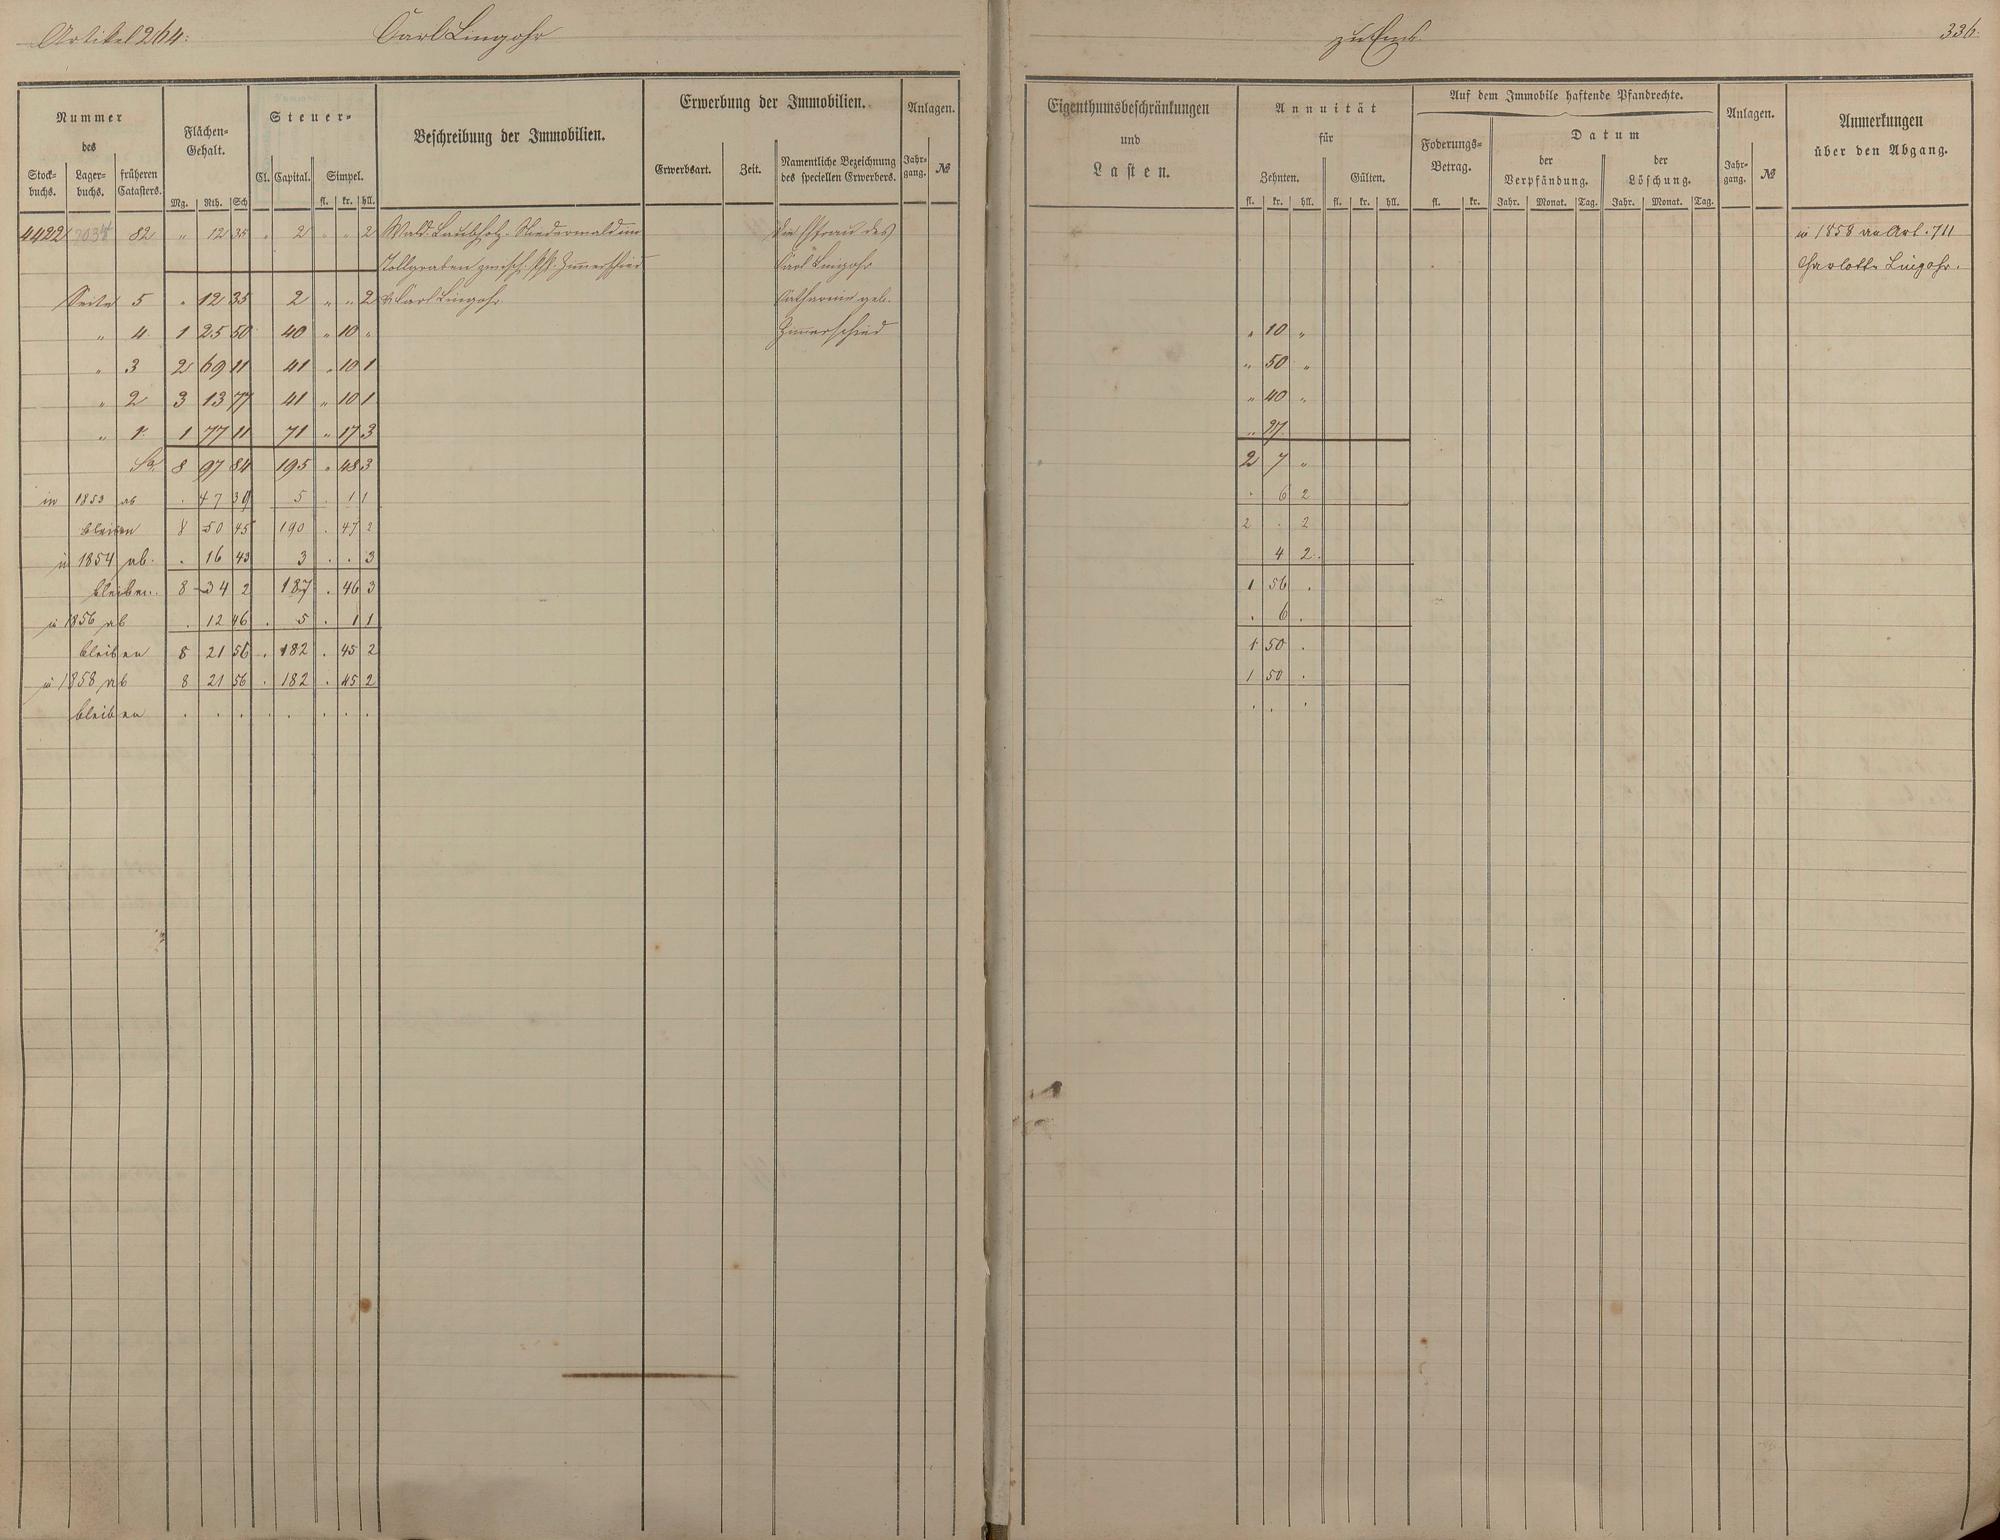 Artikel 264: Carl Lingohr zu Ems. 336.
Nummer des
Stock-buchs. Lager-buchs. früheren Catasters.
Flächen-Gehalt.
Mg. Rth. Sch
Steuer-
Cl. Capital. Simpel.
fl. kr. hll.
Beschreibung der Immobilien.
Erwerbung der Immobilien.
Erwerbsart. Zeit. Namentliche Bezeichnung des speciellen Erwerbers.
Anlagen.
Jahr-gang. №
Eigenthumsbeschränkungen
und
Lasten.
Annuität
für
Zehnten. Gülten.
fl. kr. hll. fl. kr. hll.
Auf dem Immobile haftende Pfandrechte.
Foderungs-Betrag.
fl. kr.
Datum
der Verpfändung. der Löschung.
Jahr. Monat. Tag. Jahr. Monat. Tag.
Anlagen.
Jahr-gang. №
Anmerkungen
über den Abgang.
4422 82 " 12 35 " 2 " " 2 Wald. Laubholz. Niederwald im die Ehefrau des in 1858 an Art. 711
zwisch. Zimmerschied Carl Lingohr Charlotte Lingohr.
Seite 5 " 12 35 2 " " 2 & Carl Lingohr Catharine geb.
" 4. 1 25 50 40 " 10 " Zimmerschied " 10 "
" 3 2 69 11 41 " 10 1 " 50 "
" 2 3 13 77 41 " 10 1 " 40 "
" 1. 1 77 11 71 " 17 3 " 27.
Sa. 8 97 84 195 " 48 3 2 7 "
in 1853 ab . 47 39 5 . 1 1 . 6 2
bleiben 8 50 45 190 . 47 2 2 . 2
in 1854 ab. . 16 43 3 . . 3 4 2.
bleiben. 8 34 2 187 . 46 3 1 56 .
in 1856 ab . 12 46 . 5 . 1 1 . 6 .
bleiben 8 21 56 . 182 . 45 2 1 50 .
in 1858 ab 8 21 56 . 182 . 45 2 1 50 .
bleiben . . . . . . . . . . .